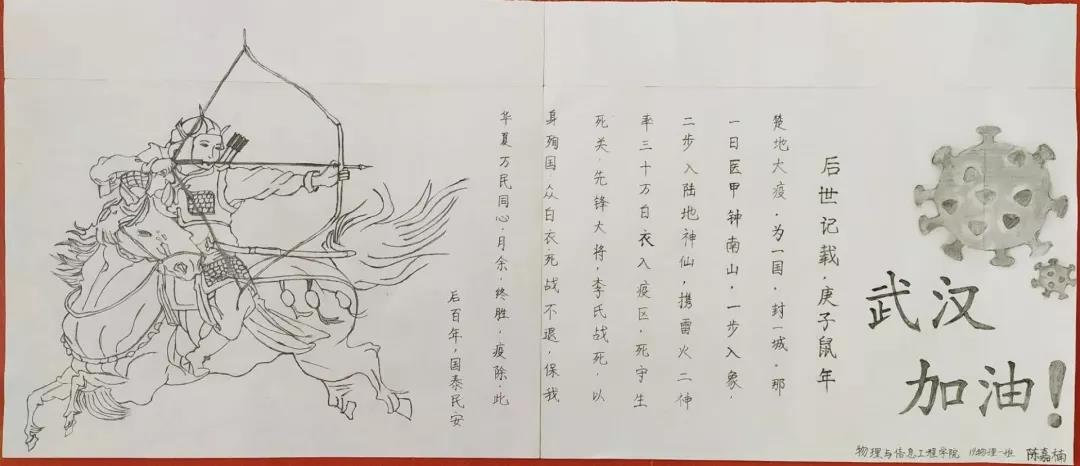 武汉
加油!
后世记载.庚子鼠年
楚地大疫.为一国.封一城.那
一日医甲钟南山.一步入象.
二步入陆地神仙,携雷火二神
率三十万白衣入疫区,死守生
死关.先锋大将,李氏战死.以
身殉国.众白衣死战不退,保我
华夏万民同心.月余.终胜.疫除.此
后百年,国泰民安
物理与信息工程学院 19物理一班 陈嘉楠